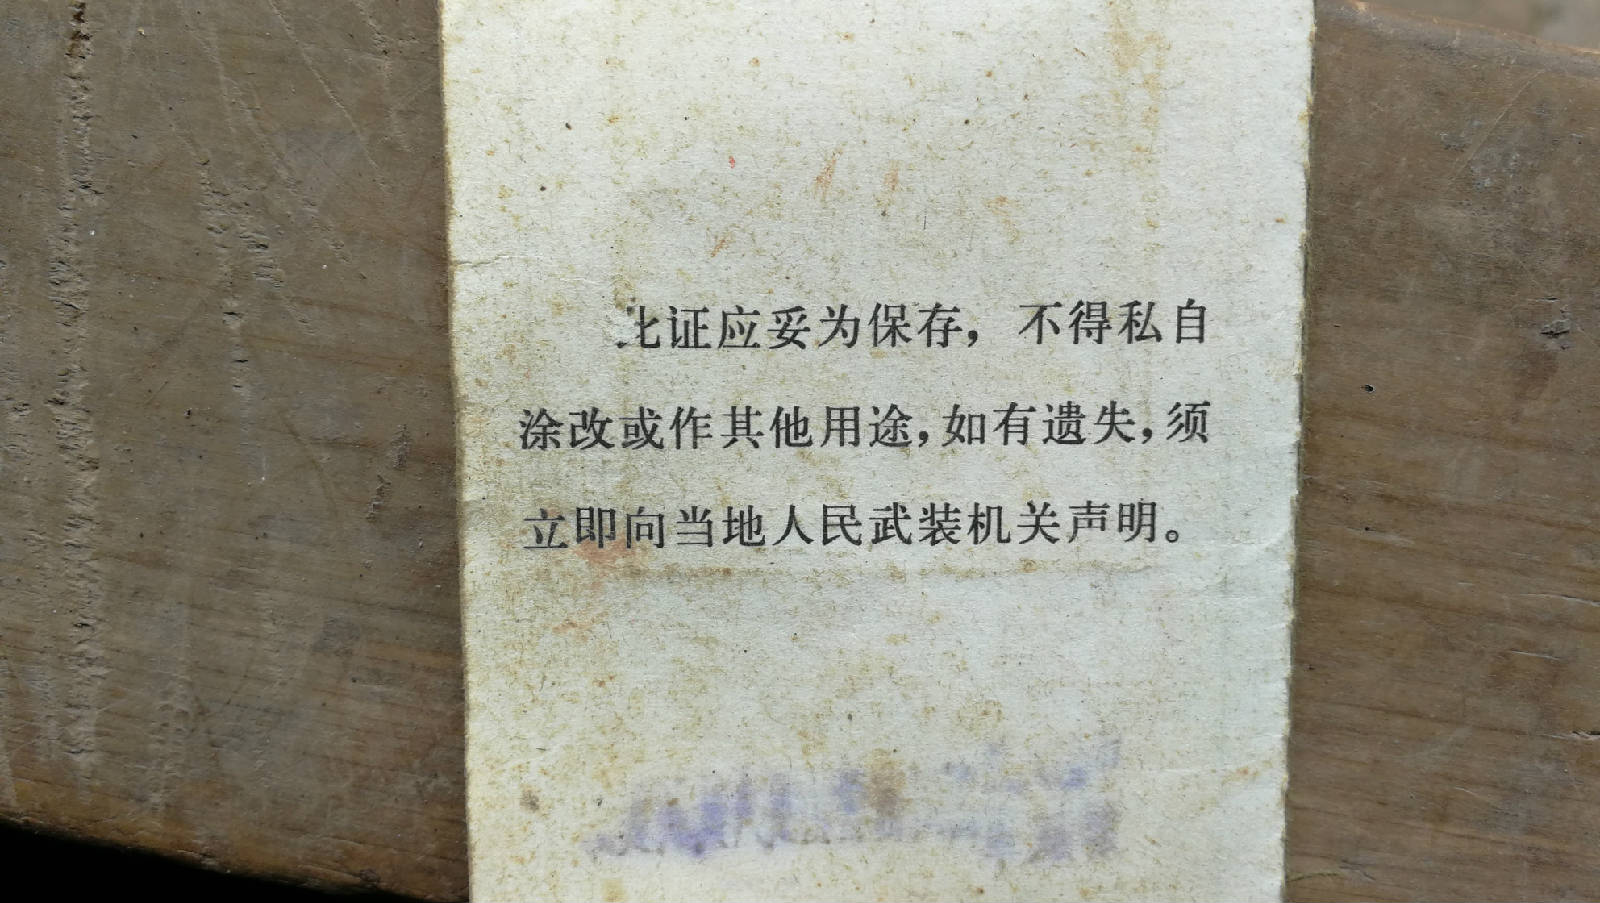 此证应妥为保存，不得私自
涂改或作其他用途，如有遗失，须
立即向当地人民武装机关声明。